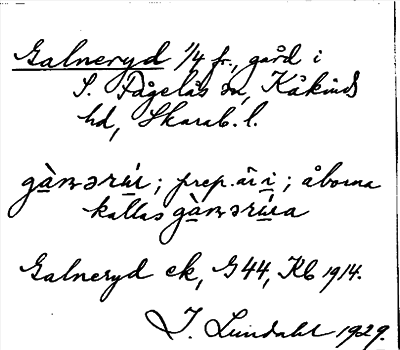 Galneryd 1/4 fr., gård i
S. Fågelås sn, Kåkinds
hd, Skarab. l.
prep. är i; åborna
kallas
Galneryd ek, G44, Kb 1914.
J. Lundahl 1929.